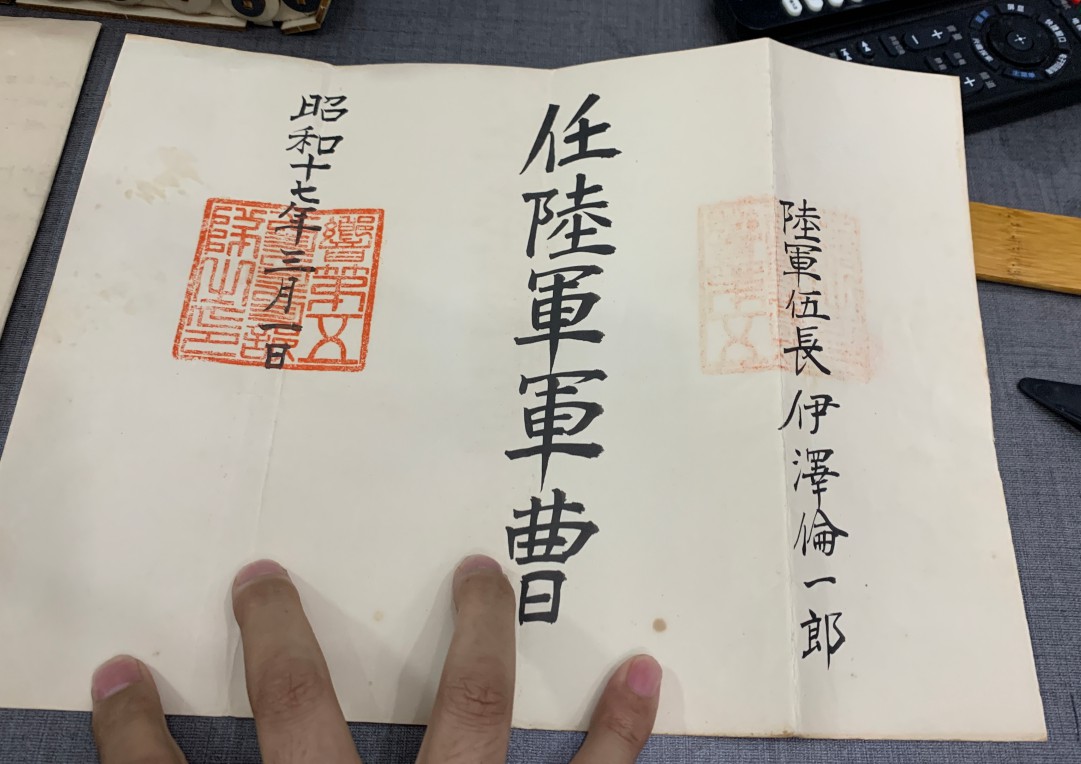 陸軍伍長伊澤倫一郎
任陸軍軍曹
昭和十七年三月一日